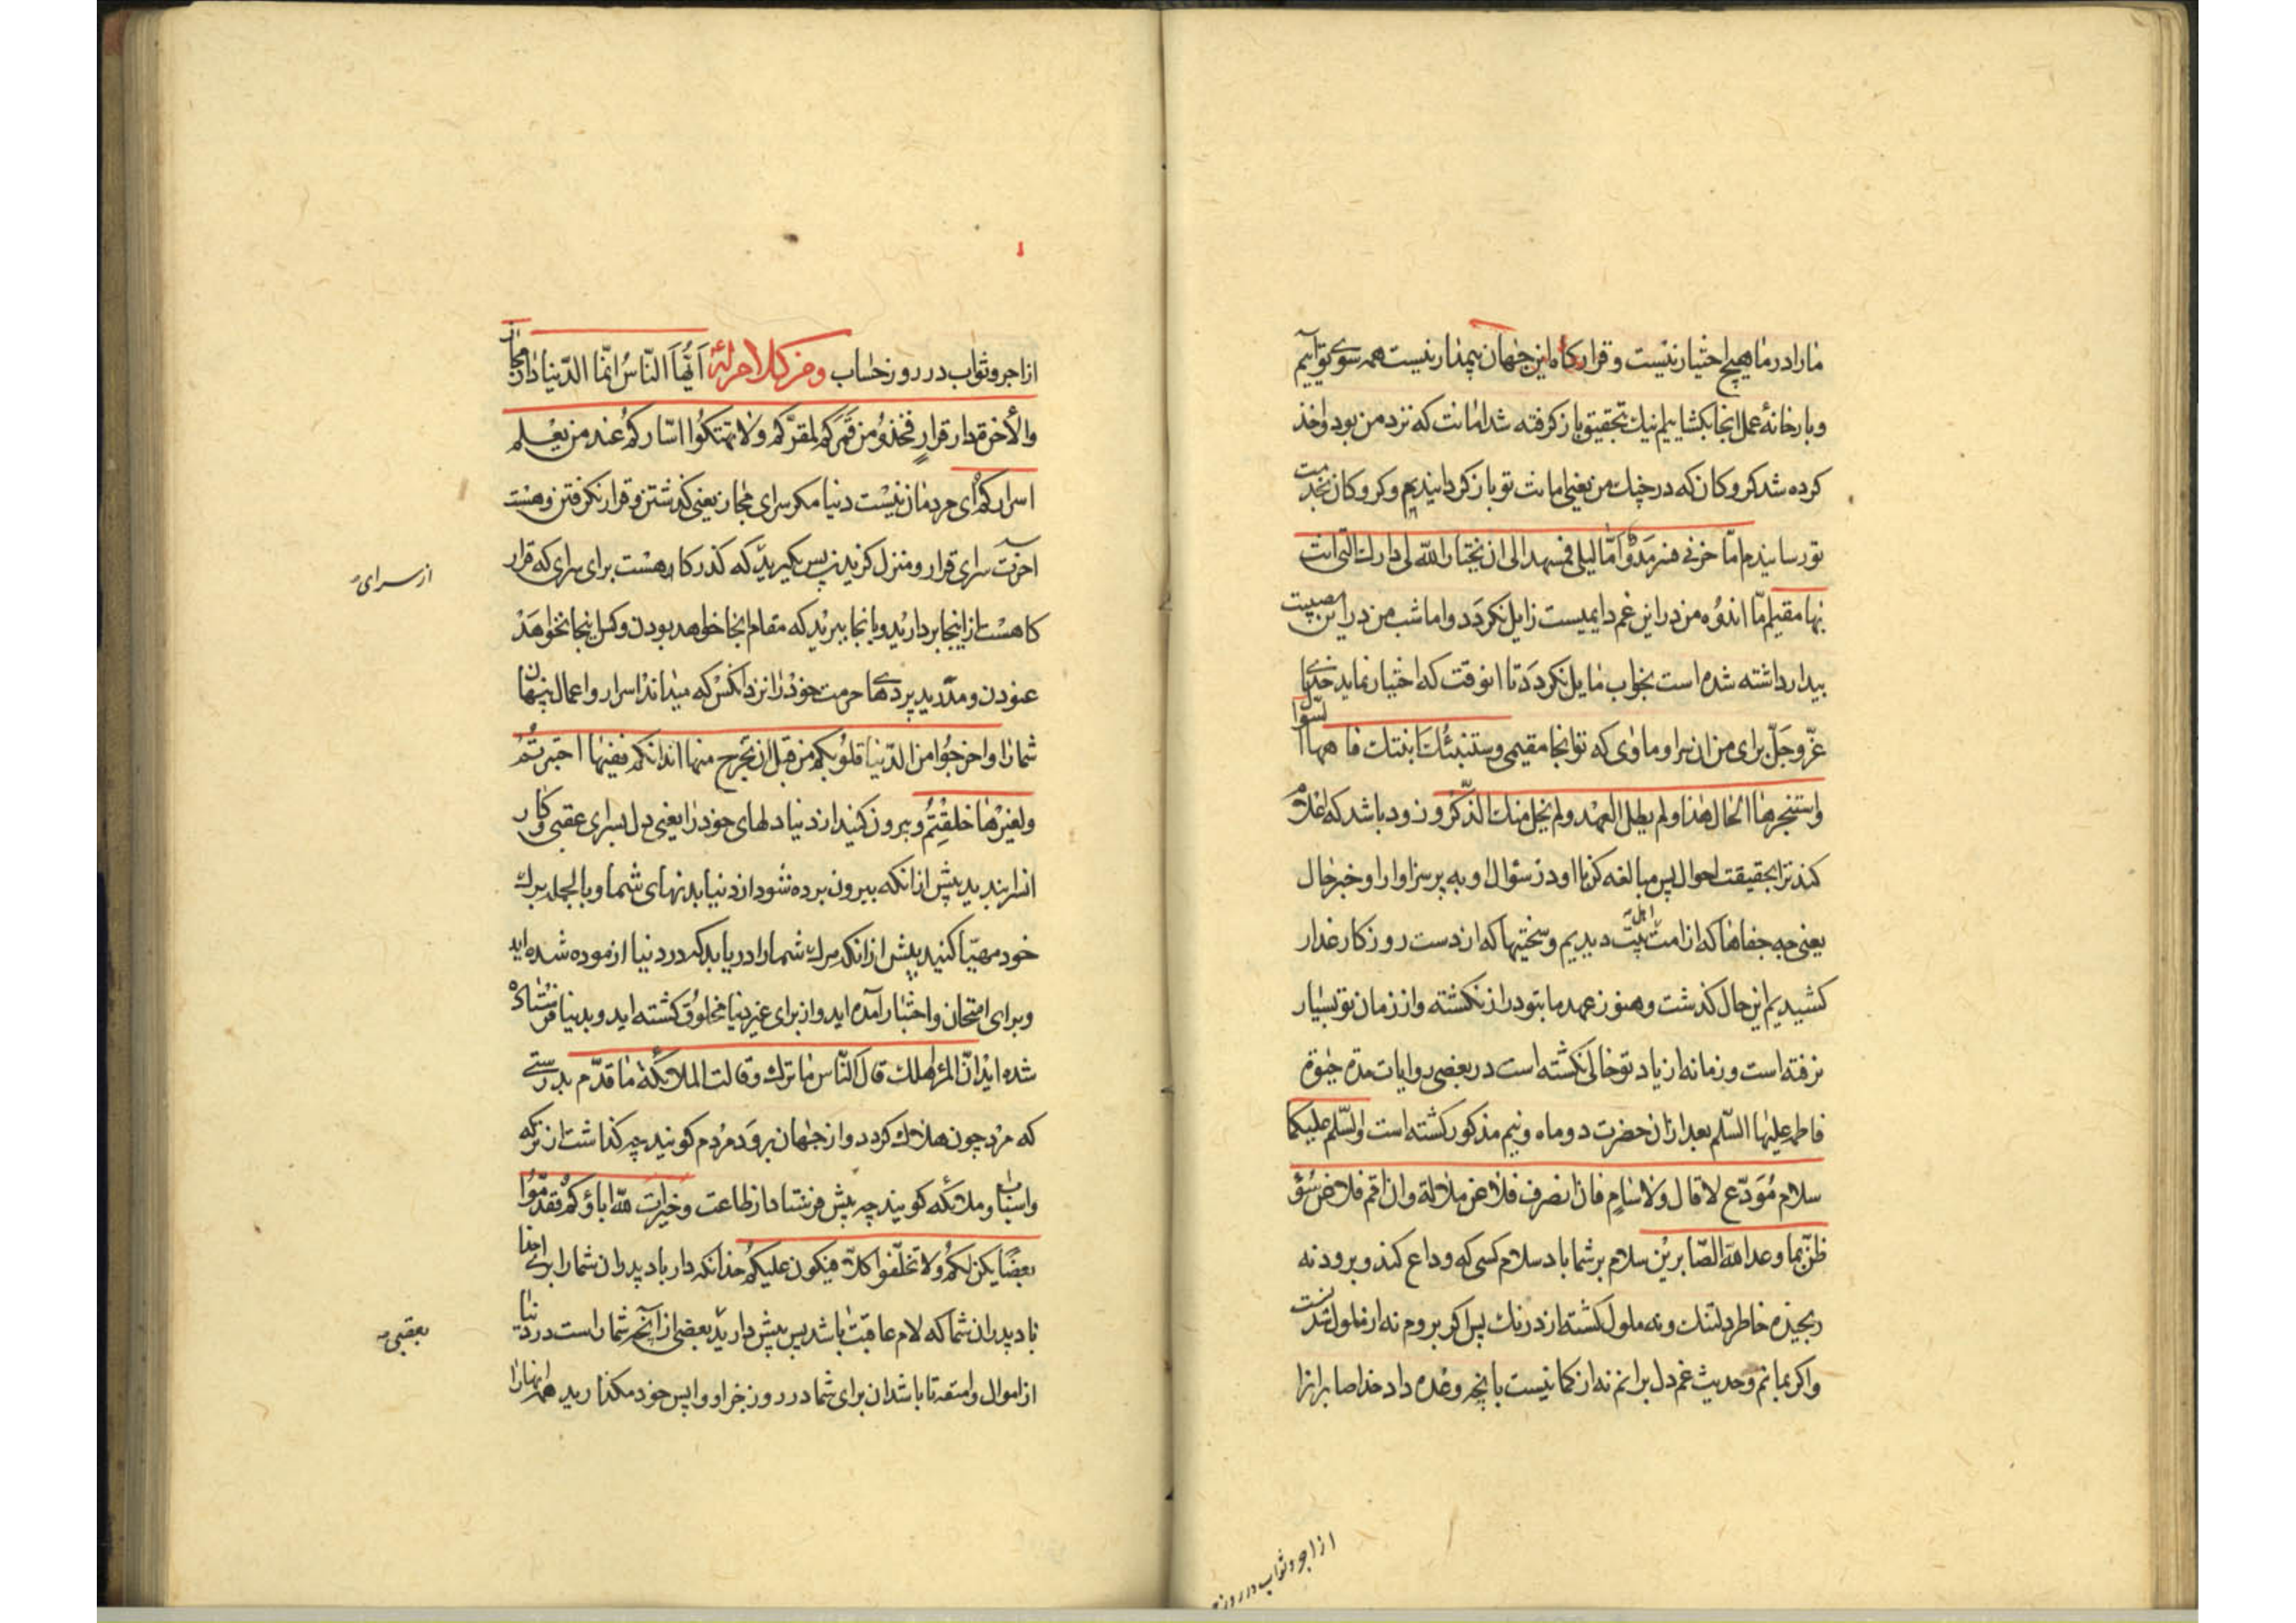 مارا درما هیچ اختیار نیست و قرارگاه این جهان پیمدار نیست همه سوی تو آییم
و بارخانهٔ عمل انجا بکشاییم نیك تحقیق باز کرفته شد امانت که نزد من بود و اخذ
کرده شد کروکان که در چنك من یعنی امانت تو باز کردانیدیم و کروکان بخدمت
تو رسانیدم امّا حزنی فسرمد وامّا لیلی فمسهد الی ان یختار الله لی دارك التی انت
بها مقیم امّا اندوه من در این غم دایمیست زایل نکردد و اما شب من در این مصیبت
بیدار داشته شده است بخواب مایل نکردد تا انوقت که اختیار نماید خدای
عزّ و جلّ برای من ان سرا و ماوٰی که تو انجا مقیمی وستنبئك ابنتك فاحفها السّوال
واستخبرها الحال هذا ولم یطل العهد ولم یخل منك الذّکر و زود باشد که اعلام
کند ترا بحقیقت احوال پس مبالغه کن با او در سؤال او به پرس از او را و خبر حال
یعنی چه جفاها که از امت اهل بیت دیدیم و سختیها که از دست روزکار غدار
کشیدیم این حال کذشت و هنوز عهد ما بتو دراز نکشته و از زمان تو بسیار
نرفته است و زمانه از یاد تو خالی نکشته است در بعضی روایات مدة حیٰوة
فاطمه علیها السّلم بعد از ان حضرت دو ماه و نیم مذکور کشته است والسّلم علیکما
سلام مُوَدّع لا قال ولا سام فان انصرف فلا عن ملالة وان اقم فلا عن سُوٓء
ظنّ بما وعد الله الصّابرین سلام بر شما باد سلام کسی که وداع کند و برود نه
رنجیده خاطر دلتنك و نه ملول کشته از درنك پس اکر بروم نه از ملول شدنست
و اکر بمانم و حدیث غم دل برانم نه از کمانیست بانچه وعده داد خدا صابرانرا
از اجر و ثواب در روز
از اجر و ثواب در روز حساب ومن کلام له اَیُّهَا النّاسُ انّما الدّنیا دار مجاز
والأخرة دار قرارٍ فخذوُ من ممرّکم لمقرّکم ولا تهتکُوا استارکم عند من یعلم
اسرارکم ای مردمان نیست دنیا مکر سرای مجاز یعنی کذشتن و قرار نکرفتن و هست
اخرت سرای قرار و منزل کزیدن پس بکیرید که کذرکاه هست برای سرای که قرار
از سرای
کاهست از اینجا بردارید و بانجا ببرید که مقام انجا خواهد بودن و کس اینجا نخواهد
غنودن و مدرید پردهای حرمت خود را نزد انکس که میداند اسرار و اعمال پنهان
شمارا واخرجُوا من الدّنیا قلوبکم من قبل ان تخرج منها ابدانکم ففیها اختبرتُم
ولغیرها خلقتُم و بیرون کنید از دنیا دلهای خود را یعنی دل بسرای عقبی و کار
انسرا بندید پیش از انکه بیرون برده شود از دنیا بدنهای شما و بالجمله برك
خود مهیّا کنید پیش از انکه مرك شمارا دریابد که در دنیا ازموده شده اید
و برای امتحان و اختبار آمده اید و از برای غیر دنیا مخلوق کشته اید و بدنیا فرستاده
شده اید انّ المرء اذا هلك قال النّاس ما ترك وقالت الملائکة ما قدّم بدرستی
که مرد چون هلاك کردد و از جهان برود مردم کویند چه کذاشت از ترکه
و اسباب و ملائکه کویند چه پیش فرستاد از طاعت و خیرات لله اباؤکم فقدّموُا
بعضًا یکن لکم ولا تخلّفوا کلّا فیکون علیکم خدا نکه دار باد پدران شمارا برای اخذا
باد پدران شما که لام عاقبت باشد پس پیش دارید بعضی از آنچه شما راست در دنیا
بعقبی
از اموال و امتعه تا باشد ان برای شما در روز جزا و واپس خود مکذارید همه انهارا